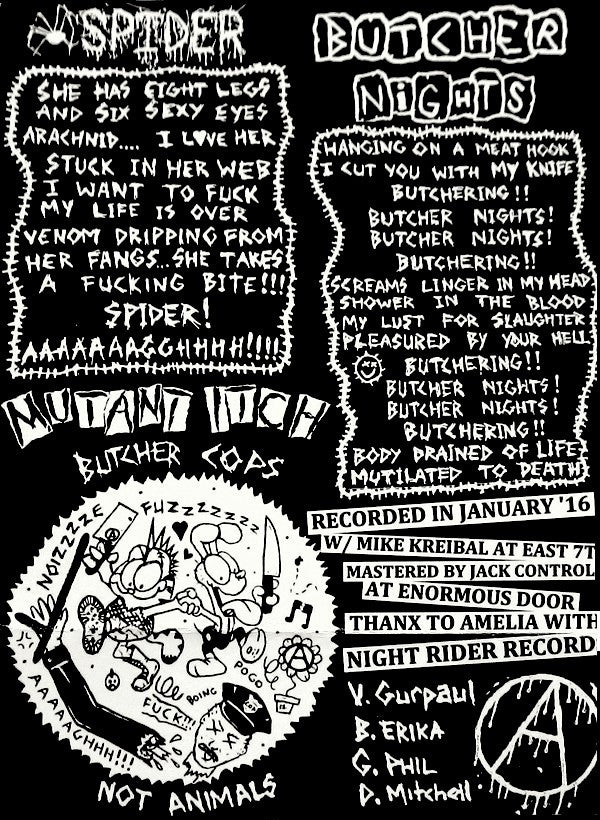 SPIDER
SHE HAS EIGHT LEGS
AND SIX SEXY EYES
ARACHNID.... I L♥VE HER
STUCK IN HER WEB
I WANT TO FUCK
MY LIFE IS OVER
VENOM DRIPPING FROM
HER FANGS...SHE TAKES
A FUCKING BITE!!!
SPIDER!
AAAAAAAGGHHHH!!!!!
BUTCHER
NIGHTS
HANGING ON A MEAT HOOK
I CUT YOU WITH MY KNIFE
BUTCHERING!!
BUTCHER NIGHTS!
BUTCHER NIGHTS!
BUTCHERING!!
SCREAMS LINGER IN MY HEAD
SHOWER IN THE BLOOD
MY LUST FOR SLAUGHTER
PLEASURED BY YOUR HELL
BUTCHERING!!
BUTCHER NIGHTS!
BUTCHER NIGHTS!
BUTCHERING!!
BODY DRAINED OF LIFE
MUTILATED TO DEATH
MUTANT ITCH
BUTCHER COPS
NOIZZZZE
FUZZZZZZZ
POGO
BOING
FUCK!!!
AAAAAGHHH!!!
NOT ANIMALS
RECORDED IN JANUARY '16
W/ MIKE KREIBAL AT EAST 7T
MASTERED BY JACK CONTROL
AT ENORMOUS DOOR
THANX TO AMELIA WITH
NIGHT RIDER RECORD
V. Gurpaul
B. ERIKA
G. PHIL
D. Mitchell